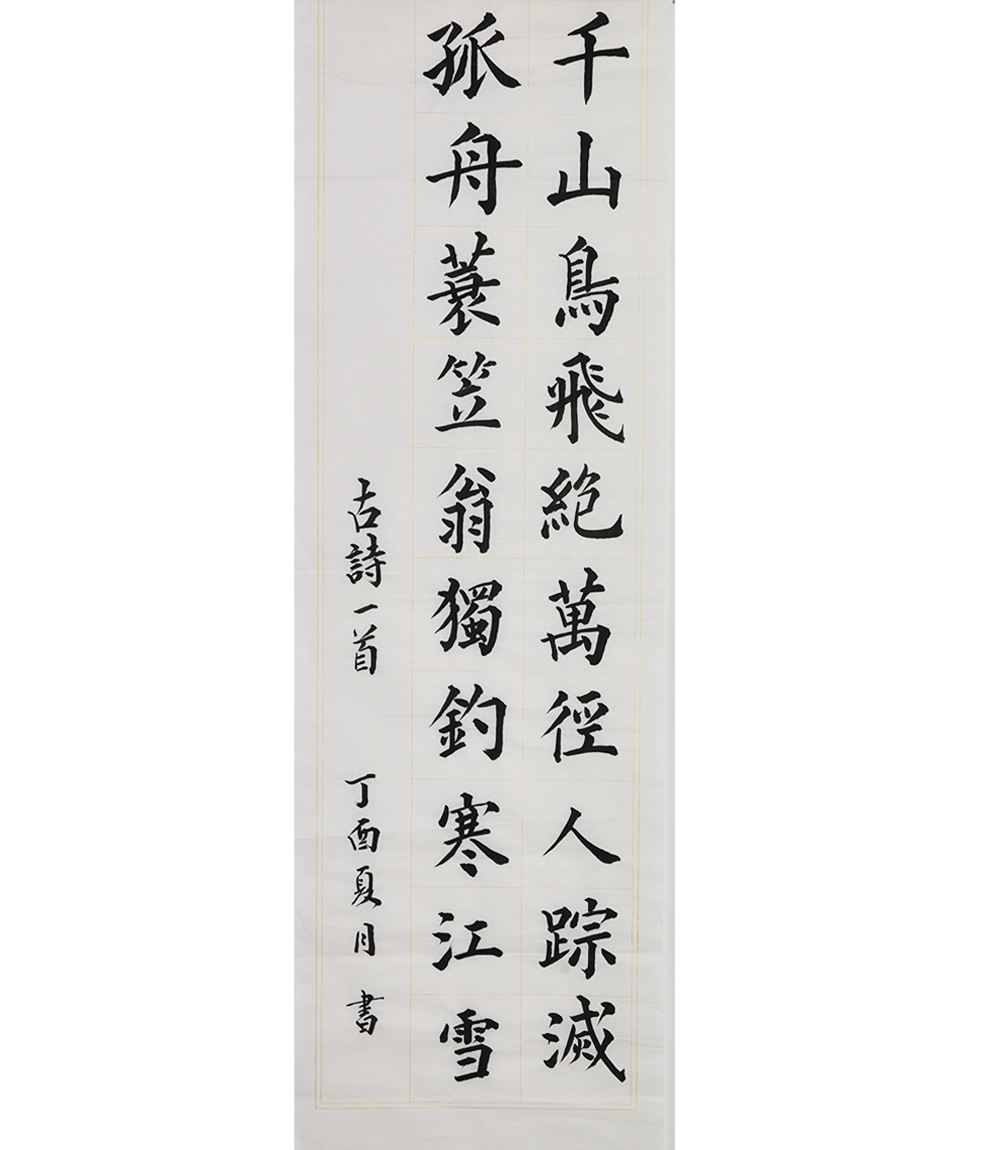 千山鳥飛絕萬徑人踪滅
孤舟蓑笠翁獨釣寒江雪
古詩一首 丁酉夏月 書